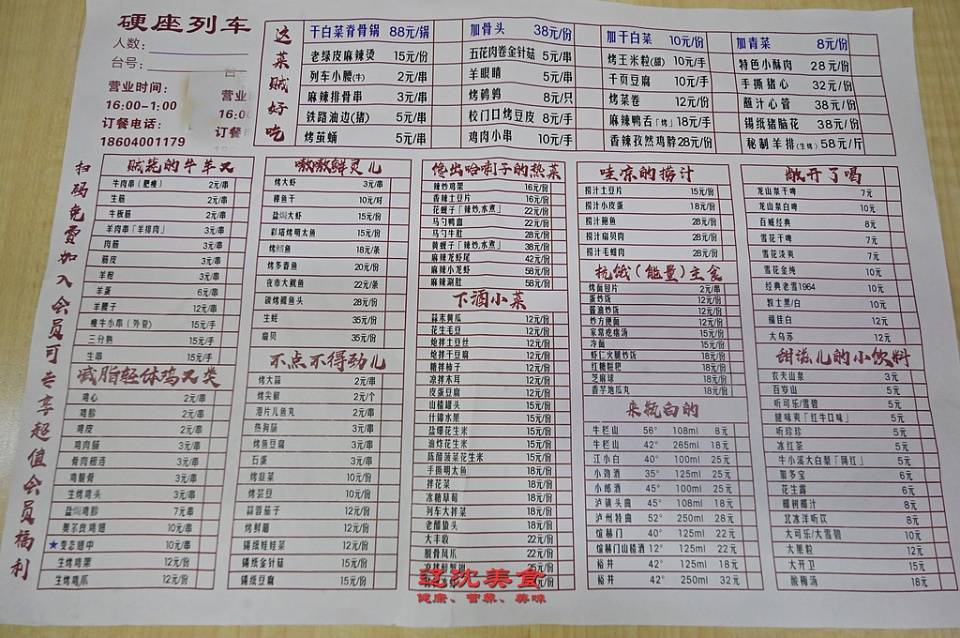 硬座列车
人数：
台号：
营业时间：
16:00-1:00
订餐电话：
18604001179
这菜贼好吃
干白菜脊骨锅 88元/锅
老绿皮麻辣烫 15元/份
列车小腰(牛) 2元/串
麻辣排骨串 3元/串
铁路油边(猪) 5元/串
烤茧蛹 5元/串
加骨头 38元/份
五花肉卷金针菇 5元/串
羊眼睛 5元/串
烤鹌鹑 8元/只
校门口烤豆皮 8元/手
鸡肉小串 10元/手
加干白菜 10元/份
烤玉米粒(甜) 10元/手
千页豆腐 10元/手
烤菜卷 12元/份
麻辣鸭舌「烤」18元/份
香辣孜然鸡脖28元/份
加青菜 8元/份
特色小酥肉 28元/份
手撕猪心 32元/份
蘸汁心管 38元/份
锡纸猪脑花 38元/份
秘制羊排(生烤) 58元/斤
扫码免费加入会员可专享超值会员福利
贼能的牛羊叉
牛肉串(肥瘦) 2元/串
生筋 2元/串
牛板筋 2元/串
羊肉串「羊排肉」 3元/串
肉筋 3元/串
筋皮 3元/串
羊蛋 6元/串
羊腰子 12元/串
瘦牛小串(外脊) 15元/手
三分熟 15元/手
生串 15元/手
减脂轻体鸡叉类
鸡心 2元/串
鸡胗 2元/串
鸡皮 2元/串
鸡肉肠 3元/串
骨肉相连 3元/串
鸡腿骨 3元/串
生烤鸡头 5元/串
盐焗鸡胗 7元/串
奥尔良鸡翅 10元/串
★变态翅中 10元/串
生烤鸡架 12元/份
生烤鸡爪 12元/份
嗷嗷鲜灵儿
烤大虾 3元/串
棒鱼干 10元/对
盐焗大虾 15元/份
彩塔烤明太鱼 15元/份
18元/条
烤多春鱼 20元/份
夜市大鱿鱼 22元/条
碳烤鲷鱼头 28元/份
生蚝 35元/份
扇贝 35元/份
不点不得劲儿
烤大蒜 2元/串
烤尖椒 2元/个
港片儿鱼丸 2元/串
热狗肠 3元/串
烤鱼豆腐 3元/串
石蛋 3元/串
烤韭菜 10元/份
烤芸豆 10元/份
蒜蓉茄子 12元/份
烤鲜蘑 12元/份
锡纸娃娃菜 12元/份
锡纸金针菇 15元/份
锡纸豆腐 15元/份
馋出哈喇子的热菜
辣炒鸡架 16元/份
香辣土豆片 16元/份
花蚬子「辣炒,水煮」 22元/份
马勺鸭血 22元/份
马勺牛肚 28元/份
黄蚬子「辣炒,水煮」 38元/份
麻辣龙虾尾 42元/份
麻辣小龙虾 58元/份
麻辣涮肚 58元/份
下酒小菜
蒜末黄瓜 12元/份
花生毛豆 12元/份
炝拌土豆丝 12元/份
炝拌干豆腐 12元/份
糖拌柿子 12元/份
凉拌木耳 12元/份
皮蛋豆腐 12元/份
山楂罐头 12元/份
什锦水果 15元/份
盐爆花生米 15元/份
油炸花生米 15元/份
陈醋菠菜花生米 15元/份
手撕明太鱼 18元/份
拌花菜 18元/份
冰糖草莓 18元/份
列车大拌菜 18元/份
老醋蜇头 18元/份
大丰收 22元/份
脱骨凤爪 22元/份
哇凉的捞汁
捞汁土豆片 15元/份
捞汁小皮蛋 18元/份
捞汁鲍鱼 28元/份
捞汁扇贝肉 28元/份
捞汁毛蛤肉 28元/份
抗饿(能量)主食
烤面包片 2元/串
蛋炒饭 12元/份
酱油炒饭 12元/份
炒方便面 12元/份
家常疙瘩汤 15元/份
冷面 15元/份
虾仁火腿炒饭 18元/份
红糖糍粑 18元/份
芝麻球 18元/份
香芋地瓜丸 18元/份
来瓶白的
牛栏山 56° 108ml 8元
牛栏山 42° 265ml 18元
江小白 40° 100ml 25元
小劲酒 35° 125ml 25元
小郎酒 45° 100ml 25元
泸镇头曲 45° 108ml 18元
泸州特曲 52° 250ml 28元
馆赫门 40° 125ml 22元
馆赫门山楂酒 12° 125ml 22元
裕井 42° 125ml 18元
裕井 42° 250ml 32元
敞开了喝
龙山泉干啤 7元
龙山泉白啤 10元
百威经典 8元
雪花干啤 7元
雪花淡爽 7元
雪花金纯 10元
经典老雪1964 10元
教士黑/白 10元
福佳白 12元
大乌苏 12元
甜滋儿的小饮料
农夫山泉 3元
百岁山 5元
听可乐/雪碧 5元
健味爽「红牛口味」 5元
听珍珍 5元
冰红茶 5元
牛小溪大白梨「网红」 5元
加多宝 6元
花生露 6元
椰树椰汁 8元
北冰洋听饮 8元
大可乐/大雪碧 10元
大果粒 12元
大开卫 15元
酸梅汤 18元
辽沈美食
健康、营养、美味